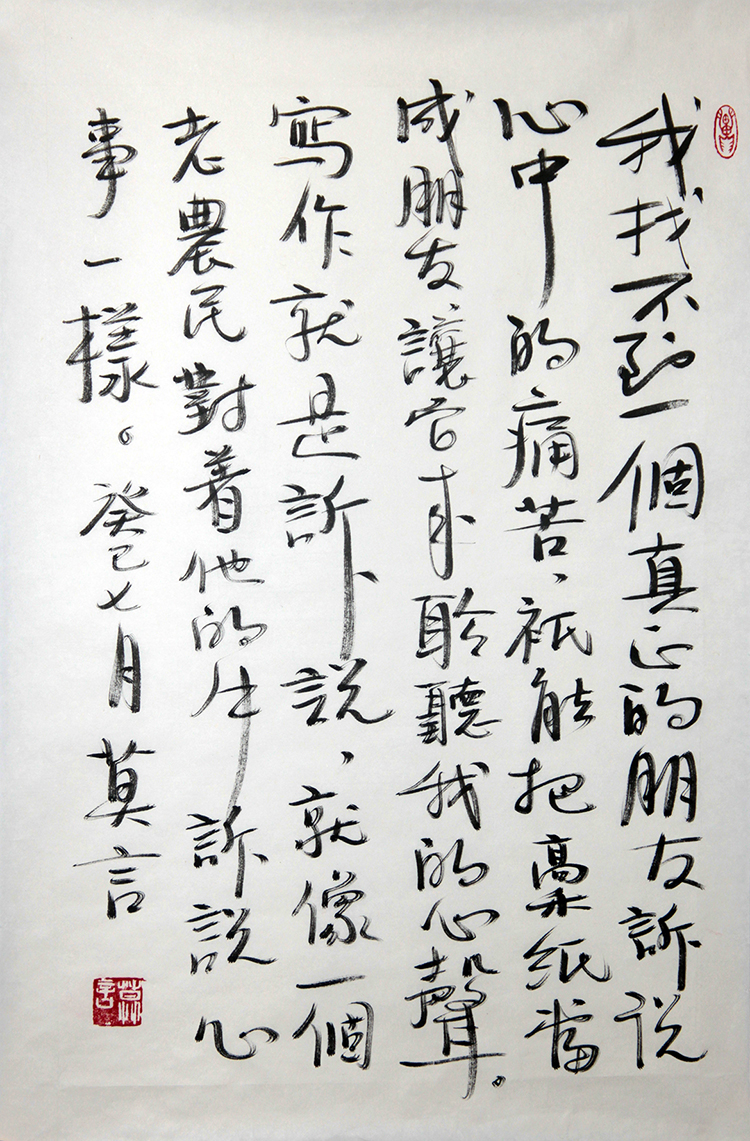 我找不到一個真正的朋友訴说
心中的痛苦、祇能把稾紙當
成朋友、讓它来聆聽我的心聲。
寫作就是訴说、就像一個
老農民對着他的牛訴説心
事一樣。癸巳七月莫言
莫言